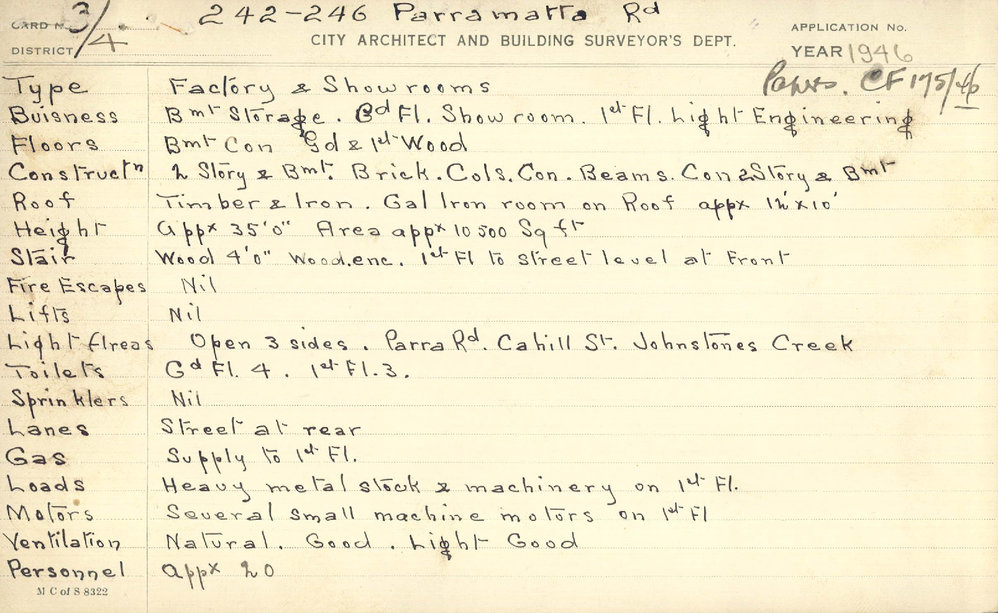 CARD No. 3/4 242-246 Parramatta Rd APPLICATION No.
DISTRICT CITY ARCHITECT AND BUILDING SURVEYOR'S DEPT. YEAR 1946
Type Factory & Showrooms CF 175/46
Buisness Bmt Storage. Gd Fl. Showroom. 1st Fl. Light Engineering
Floors Bmt Con Gd & 1st Wood
Constructn 2 Story & Bmt. Brick. Cols. Con. Beams. Con 2 Story & Bmt
Roof Timber & Iron. Gal Iron room on Roof appx 12'x10'
Height appx 35'0" Area appx 10500 Sq ft
Stair Wood 4'0" Wood.enc. 1st Fl to street level at Front
Fire Escapes Nil
Lifts Nil
Light Areas Open 3 sides. Parra Rd. Cahill St. Johnstones Creek
Toilets Gd Fl. 4. 1st Fl. 3.
Sprinklers Nil
Lanes Street at rear
Gas Supply to 1st Fl.
Loads Heavy metal stock & machinery on 1st Fl.
Motors Several small machine motors on 1st Fl
Ventilation Natural. Good. Light Good
Personnel appx 20
M C of S 8322